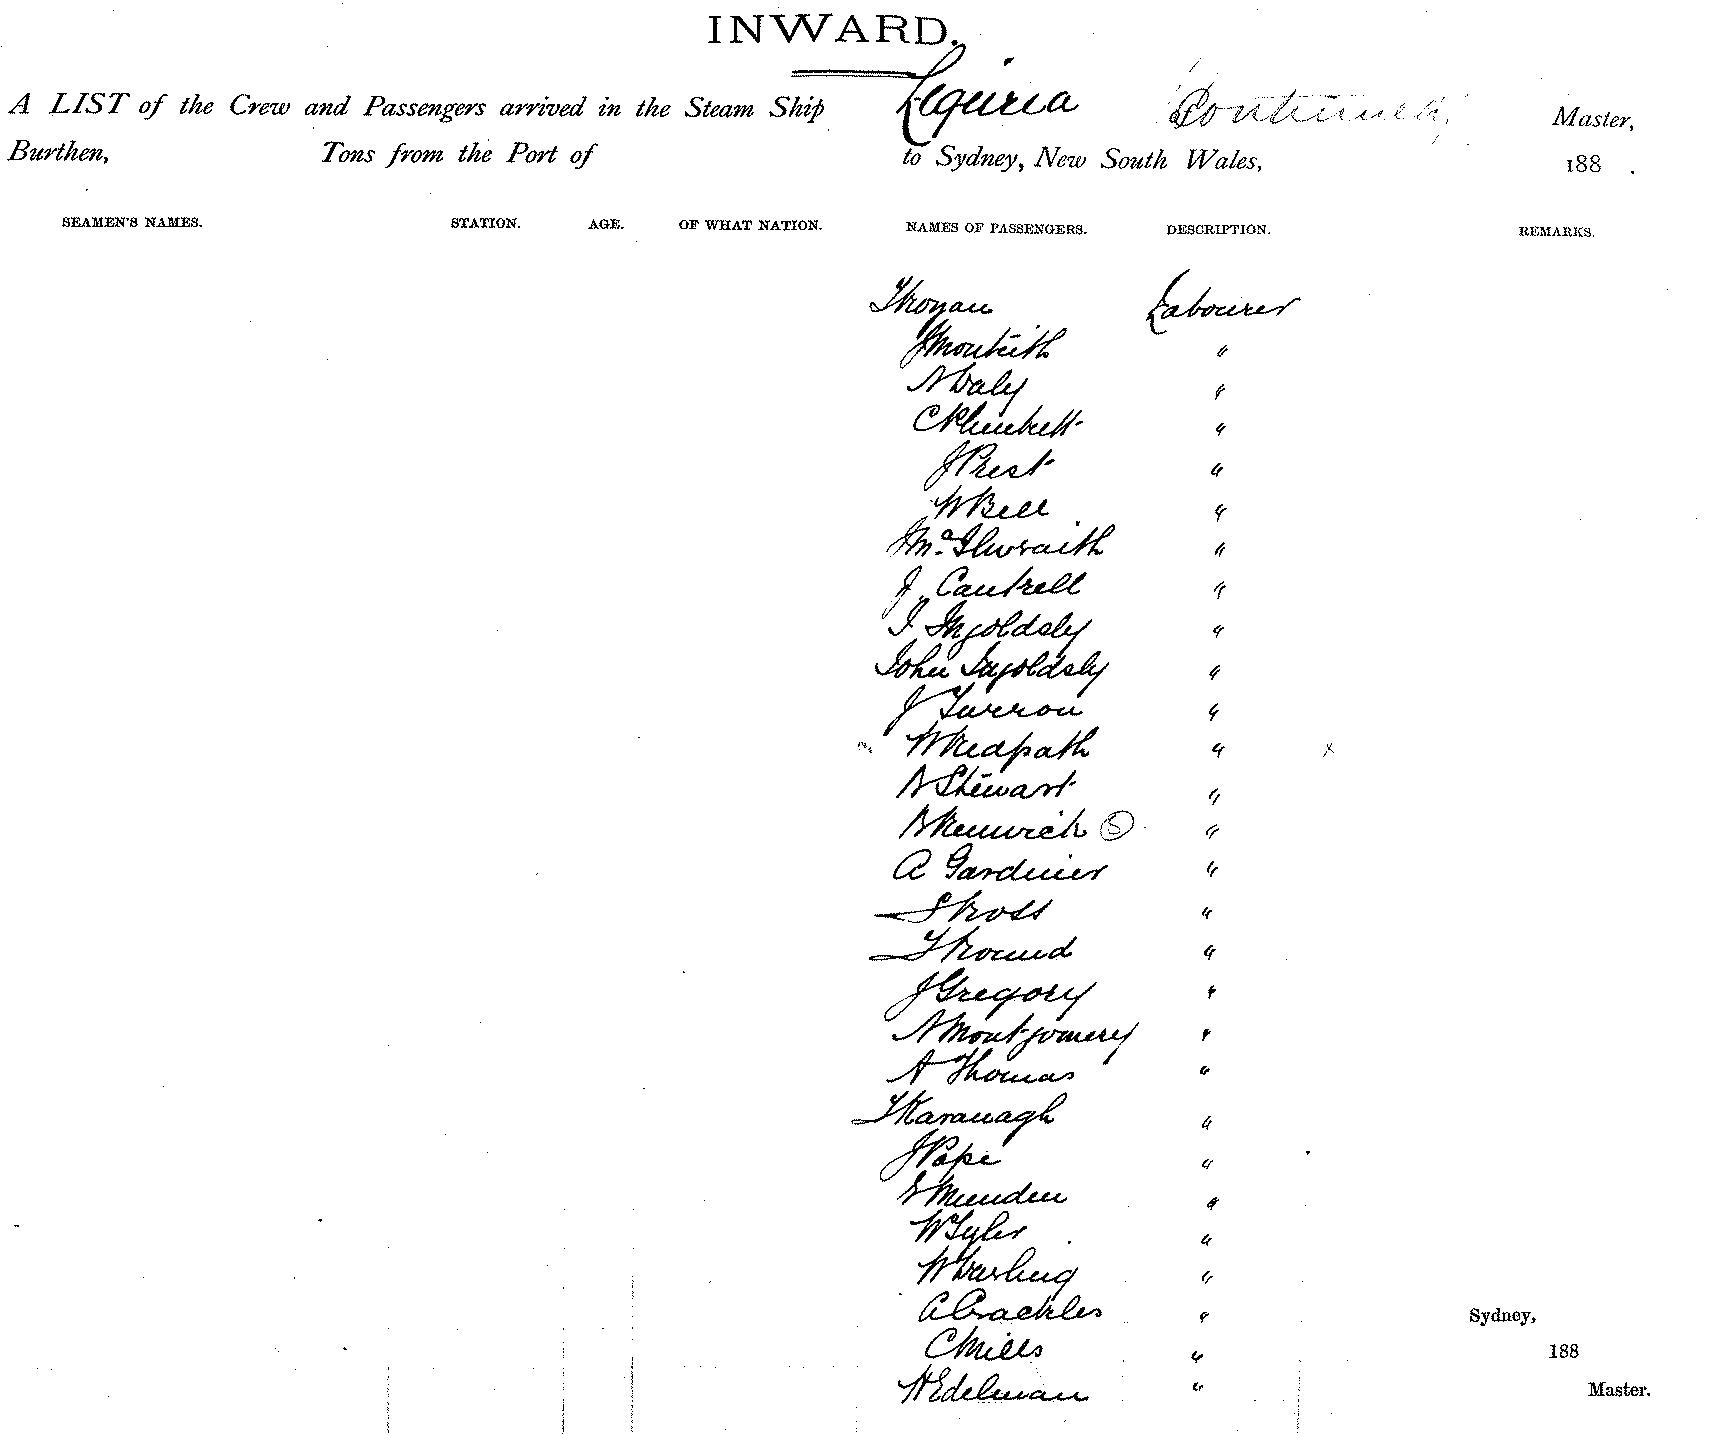 INWARD.
A LIST of the Crew and Passengers arrived in the Steam Ship Liguria Continued, Master,
Burthen, Tons from the Port of to Sydney, New South Wales, 188 .
SEAMEN'S NAMES. STATION. AGE. OF WHAT NATION. NAMES OF PASSENGERS. DESCRIPTION. REMARKS.
T Rogan Labourer
J Monteith "
N Daly "
C Plunkett "
J Prest "
W Bell "
J Mc Ilwraith "
J Cantrell "
I Ingoldsby "
John Ingoldsby "
J Turron "
W Redpath " x
A Stewart "
A Renwick (5) "
A Gardiner "
S Ross "
T Round "
J Gregory "
N Montgomery "
A Thomas "
T Kavanagh "
J Pope "
E Munden "
W Tyler "
W Darling "
A Crackles " Sydney,
C Mills " 188
H Edelman " Master.